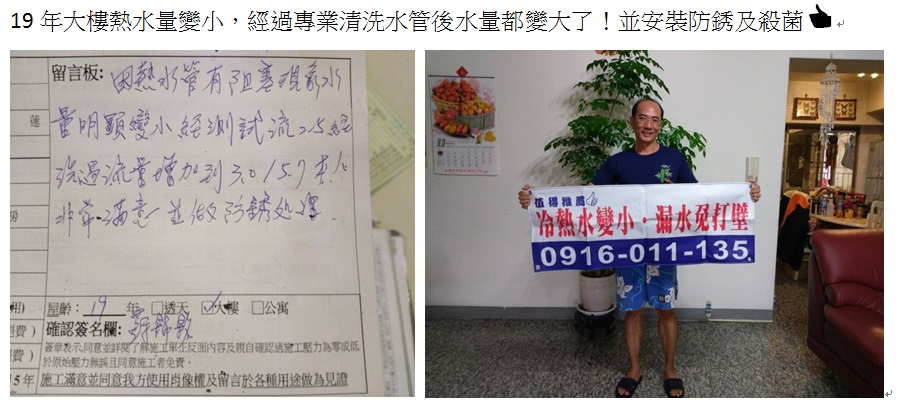 19 年大樓熱水量變小，經過專業清洗水管後水量都變大了！並安裝防銹及殺菌
留言板: 因熱水管有阻塞現象水
量明顯變小 經測試流 2.5 經
洗過流量增加到
非常滿意 並做防銹處理.
屋齡: 19 年 □透天 ☑大樓 □公寓
確認簽名欄:
簽章表示:同意並詳閱了解施工單在反面內容及親自確認過施工壓力為零或低
於原始壓力無誤且同意施工者免責。
施工滿意並同意我方使用肖像權及留言於各種用途做為見證
蓮
房
用)
費)
費)
5年
11
值得推薦
冷熱水變小‧漏水免打壁
0916-011-135